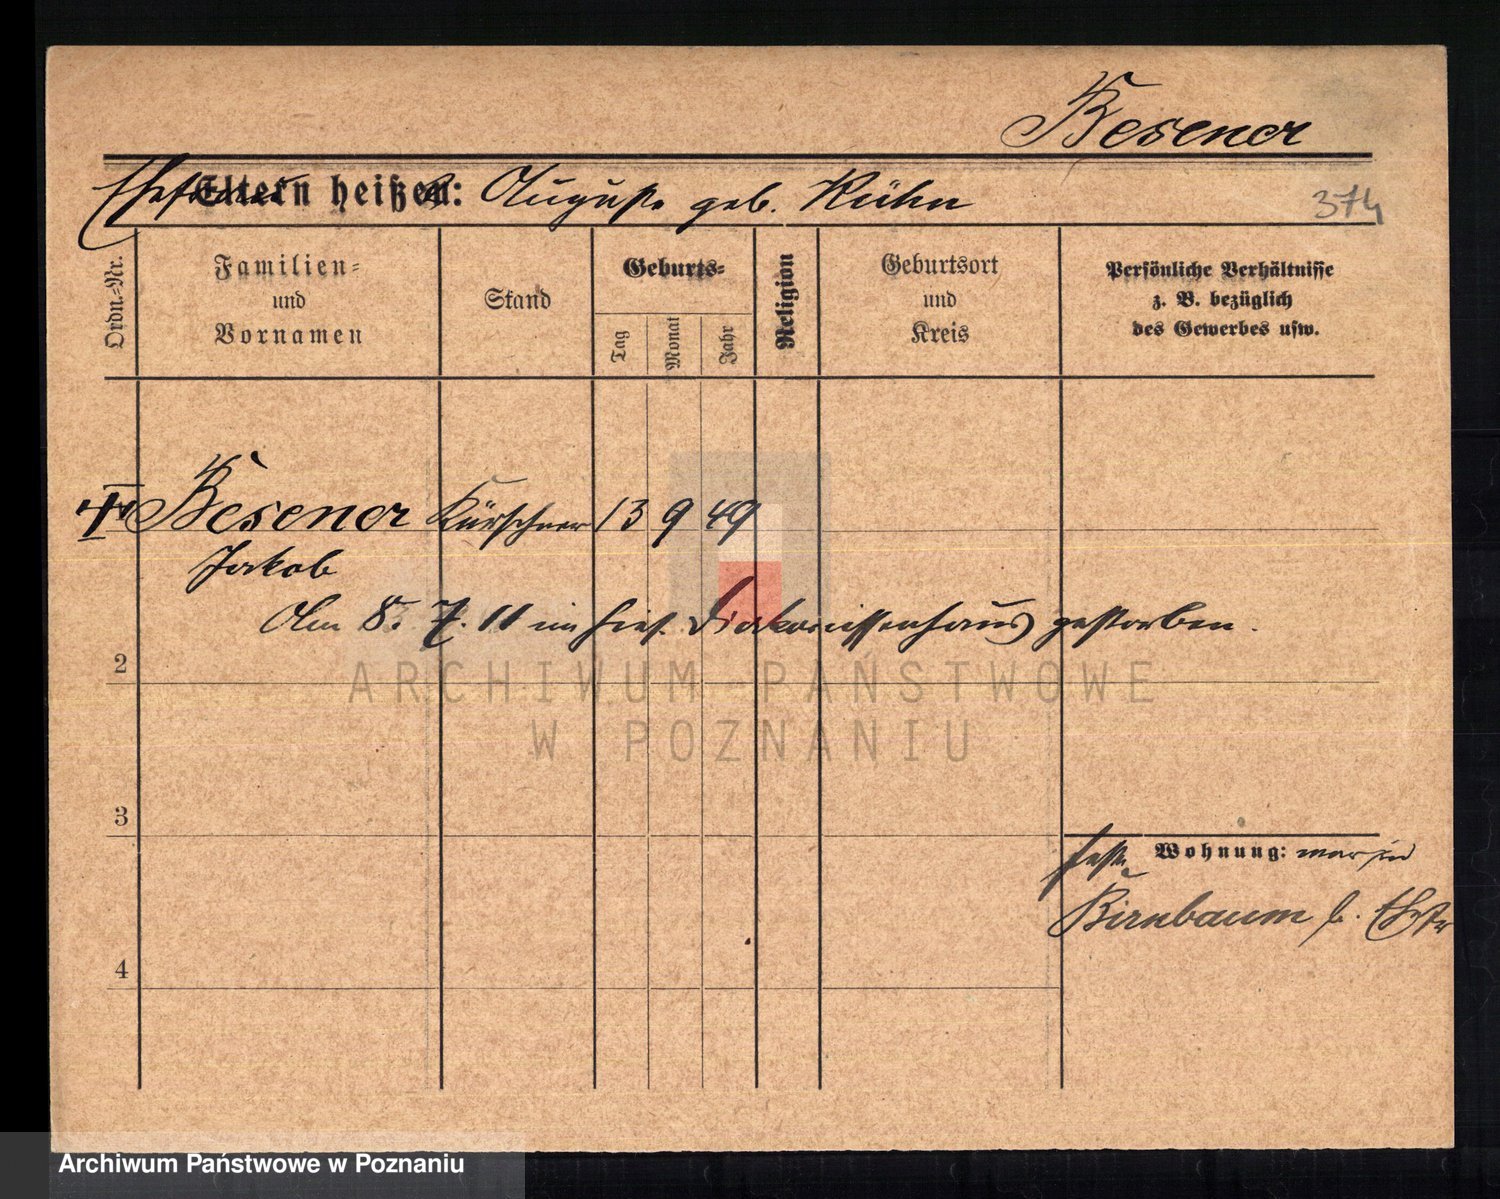 Besener
Ehefrau
Eltern heißen: Auguste geb. Kühn
374
Ordn.-Nr.
Familien-
und
Vornamen
Stand
Geburts-
Tag
Monat
Jahr
Religion
Geburtsort
und
Kreis
Persönliche Verhältnisse
z. B. bezüglich
des Gewerbes usw.
Besener Kürschner 13 9 49
Jakob
Am 8. 7. 11 im hies. Diakonissenhaus gestorben.
2
ARCHIWUM PAŃSTWOWE
W POZNANIU
3
Wohnung: war in
Birnbaum b.
4
Archiwum Państwowe w Poznaniu